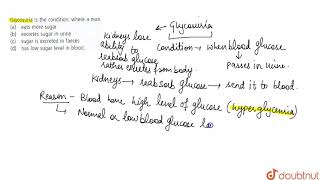 Glycosuria is the condition, where a man
(a) eats more sugar
(b) excretes sugar in urine
(c) sugar is excreted in faeces
(d) has low sugar level in blood.
Glycosuria
kidneys lose ability to reabsorb glucose rather excretes from body
condition → when blood glucose
↓
passes in urine.
kidneys → reabsorb glucose → send it to blood.
Reason - Blood have high level of glucose (hyperglycemia)
↳ Normal or low blood glucose l
doubtnut